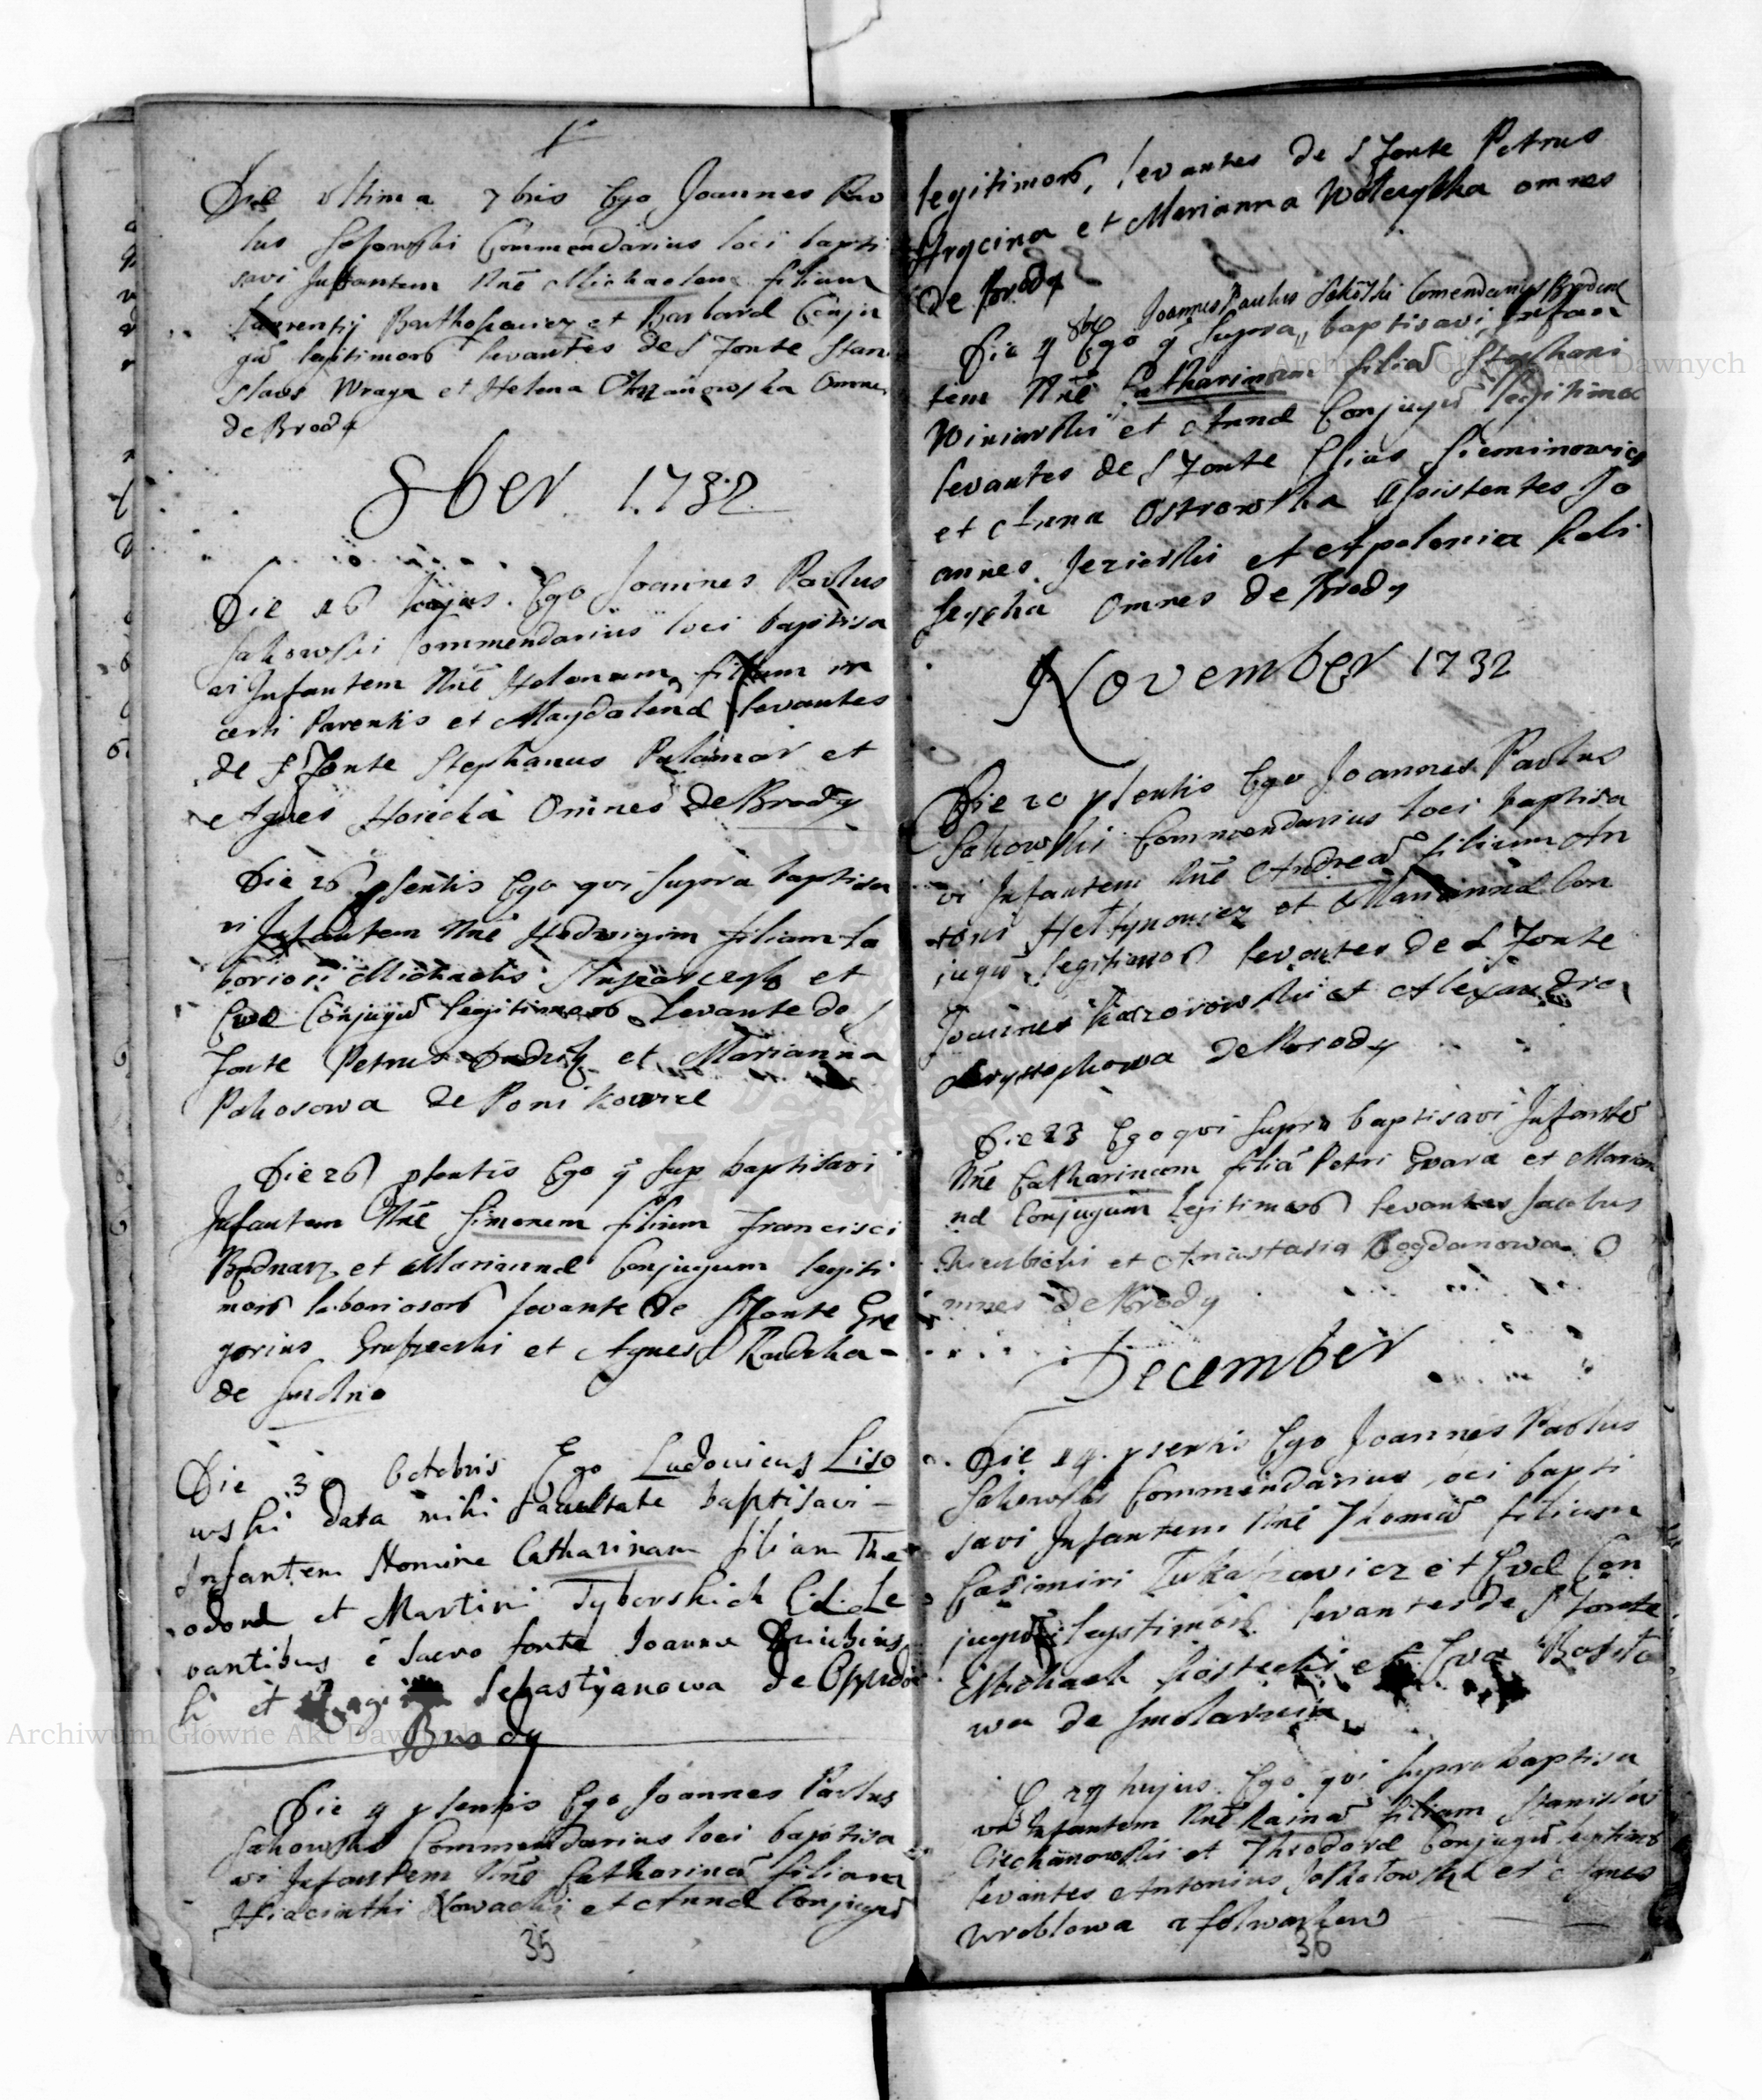 Die vltima 7bris Ego Joannes Pav
lus Sakowski Commendarius loci bapti
savi Infantem Nnē Michaelem filium
Laurentij Barthosiewicz et Barbaræ Conju
gū legitimorō levantes de S Fonte Stani
slaus Wraga et Helena Chrzanowska Omnes
de Brody
8ber 1732
Die 16 hujus Ego Joannes Pavlus
Sakowski Commendarius loci baptisa
vi Infantem Nnē Helenam filiam in
certi Parentis et Magdalenæ levantes
de S Fonte Stephanus Palamar et
Agnes Horecka Omnes de Brody
Die 26 psentis Ego qvi supra baptisa
vi Infantem Nnē Hedvigim filiam La
boriosi Michaelis et
Evæ Conjugū legitimorō Levante de S
Fonte Petrus et Marianna
Pakosowa de Ponikowice
Die 26 psentis Ego q̄ sup baptisavi
Infantem Nnē Simonem filium Francisci
Bednarz et Mariannæ Conjugum legiti
morō laboriosorō levante de S Fonte Gre
gorius et Agnes Rudzka
de Smolno
Die 30 Octobris Ego Ludovicus Liso
wski data mihi facultate baptisavi
Infantem Nomine Catharinam filiam The
odoræ et Martini Tyborskich C.L. Le
vantibus è Sacro fonte Joanne
et Sebastyanowa de Oppido
Brody
Die 9 psentis Ego Joannes Pavlus
Sakowski Commendarius loci baptisa
vi Infantem Nnē Catharinā filiam
Hiacinthi Nowacki et Annæ Conjugū
35
legitimorō, levantes de S Fonte Petrus
Hrycina et Marianna Woleryska omnes
de Brody
8bris Joannes Paulus Sakowski Comendarius Brodensis
Die 9 Ego q̄ supra baptisavi Infan
tem Nnē Catharinam filiā Stephani
Winiarski et Annæ Conjugū legitimor
levantes de S Fonte Elias Sieminowicz
et Anna Ostrowska Assistentes Jo
annes Jezierski et Apolonia Kali
szycka Omnes de Brody
November 1732
Die 20 psentis Ego Joannes Pavlus
Sakowski Commendarius loci baptisa
vi Infantem Nnē Andreā filium An
toni Heltynowicz et Mariannæ Con
jugū legitimorō levantes de S Fonte
Joannes Kaczorowski et Alexandra
Krysztophowa de Brody
Die 23 Ego qvi supra baptisavi Infantē
Nnē Catharinam filiā Petri Gvara et Marian
næ Conjugum Legitimorō levantes Jacobus
et Anastasia Bogdanowa O
mnes de Brody
December
Die 14 psentis Ego Joannes Pavlus
Sakowski Commendarius loci bapti
savi Infantem Nnē Thomā filium
Casimiri Lukasiewicz et Evæ Con
jugū legitimorō levantes de S Fonte
Michael Kostecki et Eva
wa de Smolarnia
D 29 hujus Ego qvi supra baptisa
vi Infantem Nnē Rainā filiam Stanislai
Ciechanowski et Theodoræ Conjugū legitimorō
levantes Antonius et Agnes
Wroblowa z folwarkow
36
Archiwum Główne Akt Dawnych
Archiwum Główne Akt Dawnych